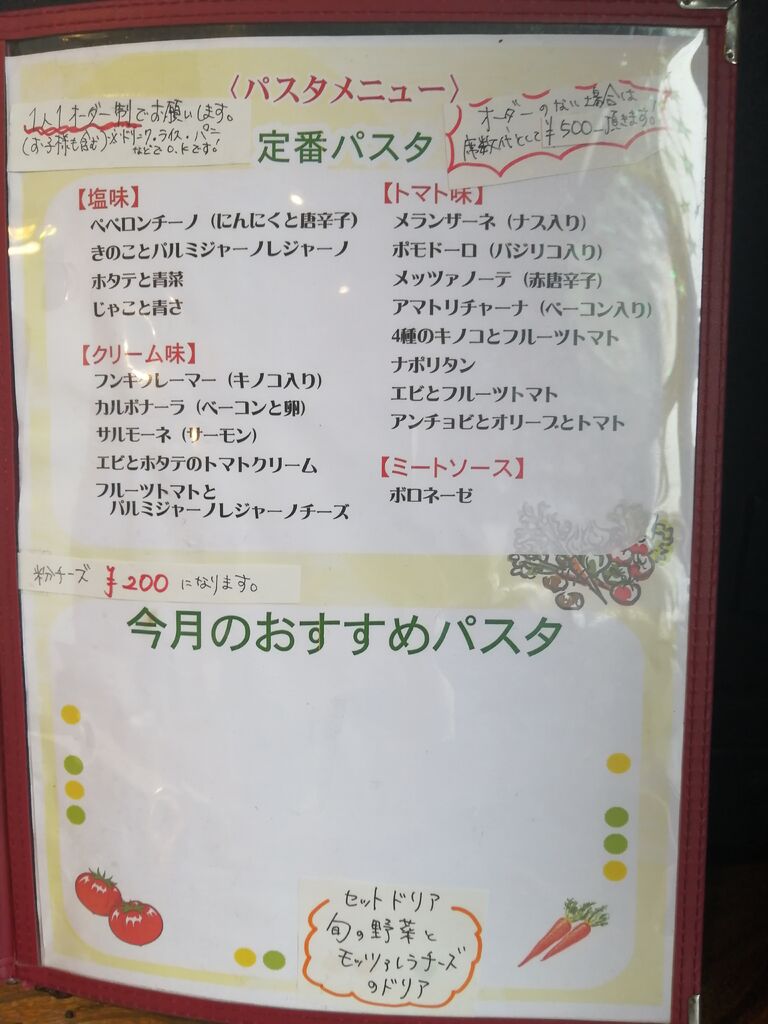 〈パスタメニュー〉
1人1オーダー制でお願いします。
(お子様も含む)※ドリンク・ライス・パン
などでO.Kです!
オーダーのない場合は
席数代として¥500-頂きます!
定番パスタ
【塩味】
ペペロンチーノ(にんにくと唐辛子)
きのことパルミジャーノレジャーノ
ホタテと青菜
じゃこと青さ
【クリーム味】
フンギクレーマー(キノコ入り)
カルボナーラ(ベーコンと卵)
サルモーネ(サーモン)
エビとホタテのトマトクリーム
フルーツトマトと
パルミジャーノレジャーノチーズ
【トマト味】
メランザーネ(ナス入り)
ポモドーロ(バジリコ入り)
メッツァノーテ(赤唐辛子)
アマトリチャーナ(ベーコン入り)
4種のキノコとフルーツトマト
ナポリタン
エビとフルーツトマト
アンチョビとオリーブとトマト
【ミートソース】
ボロネーゼ
粉チーズ ¥200 になります。
今月のおすすめパスタ
セットドリア
旬の野菜と
モッツァレラチーズ
のドリア